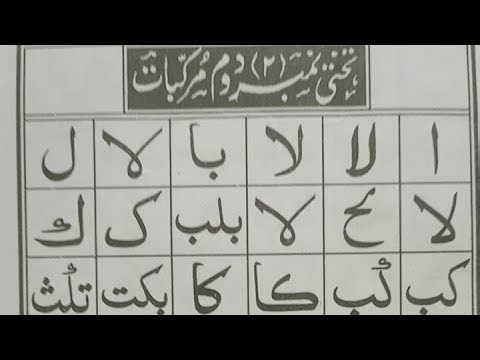 تختی نمبر (۲) دوم مرکبات
ا لا لا با لا ل
لا لح لا بلب ک ك
کب كب كا کا بکت تلث